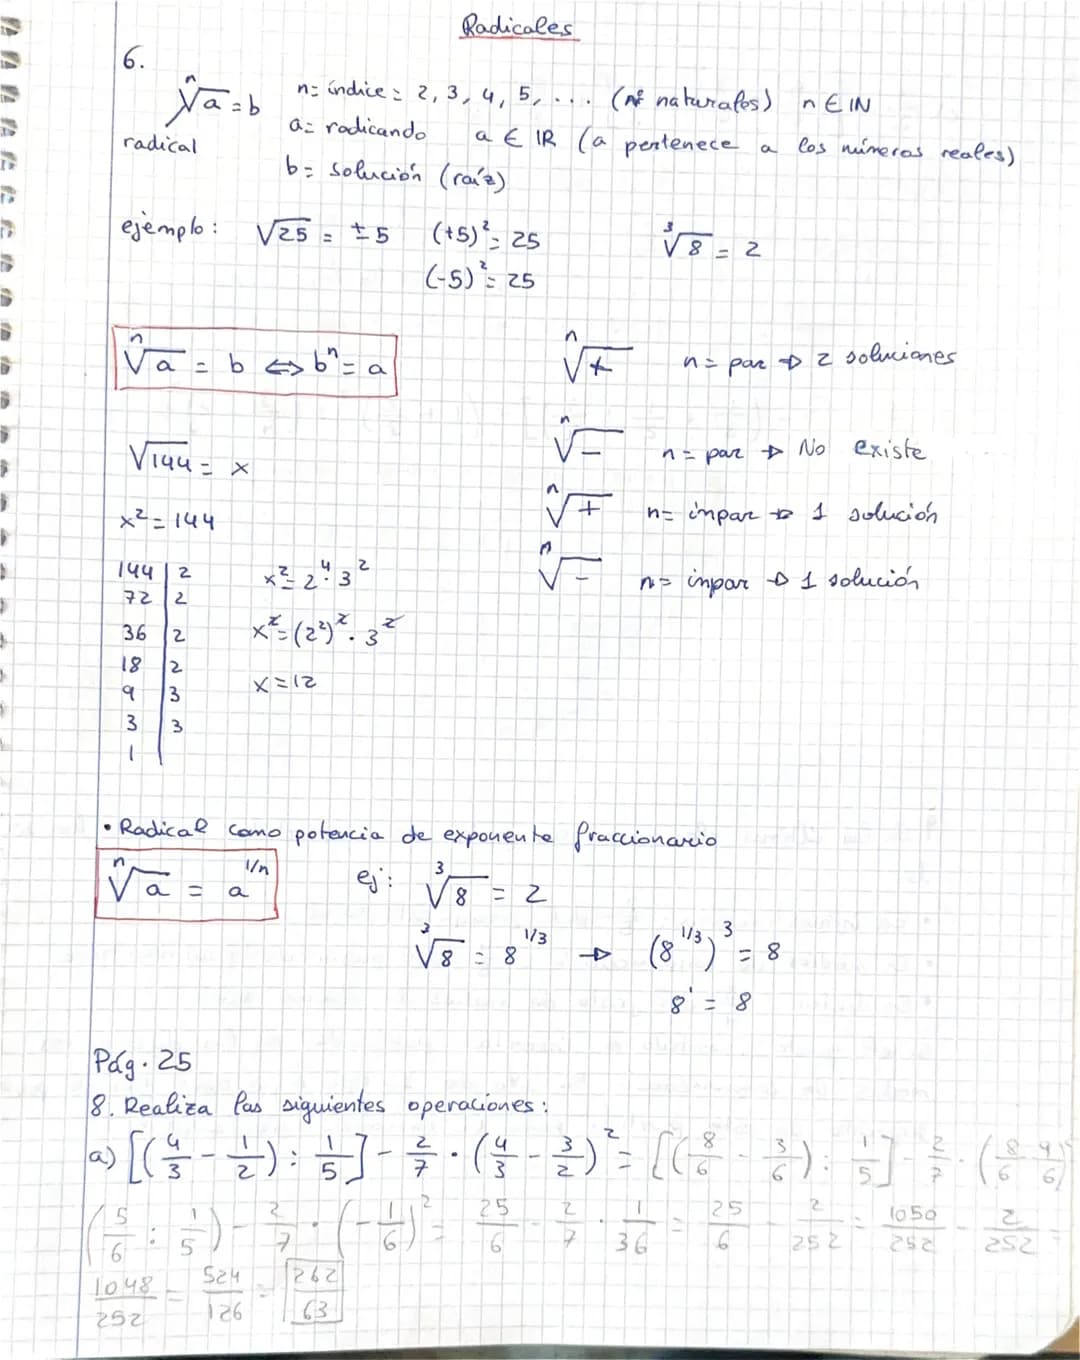 Radicales
6.
ⁿ√a = b   n = índice = 2, 3, 4, 5, ... (nº naturales)   n ∈ IN
radical   a = radicando   a ∈ IR (a pertenece a los números reales)
b = solución (raíz)
ejemplo: √25 = ±5   (+5)² = 25   ³√8 = 2
(-5)² = 25
ⁿ√a = b ⇔ bⁿ = a   ⁿ√+   n = par → 2 soluciones
√144 = x   ⁿ√-   n = par → No existe
x² = 144   ⁿ√+   n = inpar → 1 solución
144 | 2   x² = 2⁴ · 3²   ⁿ√-   n = inpar → 1 solución
72 | 2
36 | 2   x² = (2²)² · 3²
18 | 2
9 | 3   x = 12
3 | 3
1 |
• Radical como potencia de exponente fraccionario
ⁿ√a = a^(1/n)   ej: ³√8 = 2
³√8 = 8^(1/3) → (8^(1/3))³ = 8
8¹ = 8
Pág. 25
8. Realiza las siguientes operaciones:
a) [(4/3 - 1/2) : 1/5] - 2/7 · (4/3 - 3/2)² = [(8/6 - 3/6) : 1/5] - 2/7 · (8/6 - 9/6)
(5/6 : 1/5) - 2/7 · (-1/6)² = 25/6 - 2/7 · 1/36 = 25/6 - 2/252 = 1050/252 - 2/252 =
1048/252 = 524/126 = 262/63